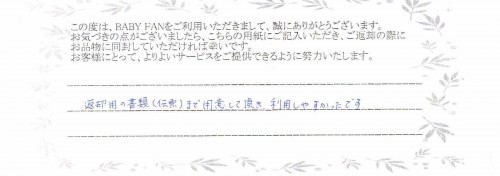 この度は、BABY FANをご利用いただきまして、誠にありがとうございます。
お気づきの点がございましたら、こちらの用紙にご記入いただき、ご返却の際に
お品物に同封していただければ幸いです。
お客様にとって、よりよいサービスをご提供できるように努力いたします。
返却用の書類(伝票)まで用意して頂き、利用しやすかったです